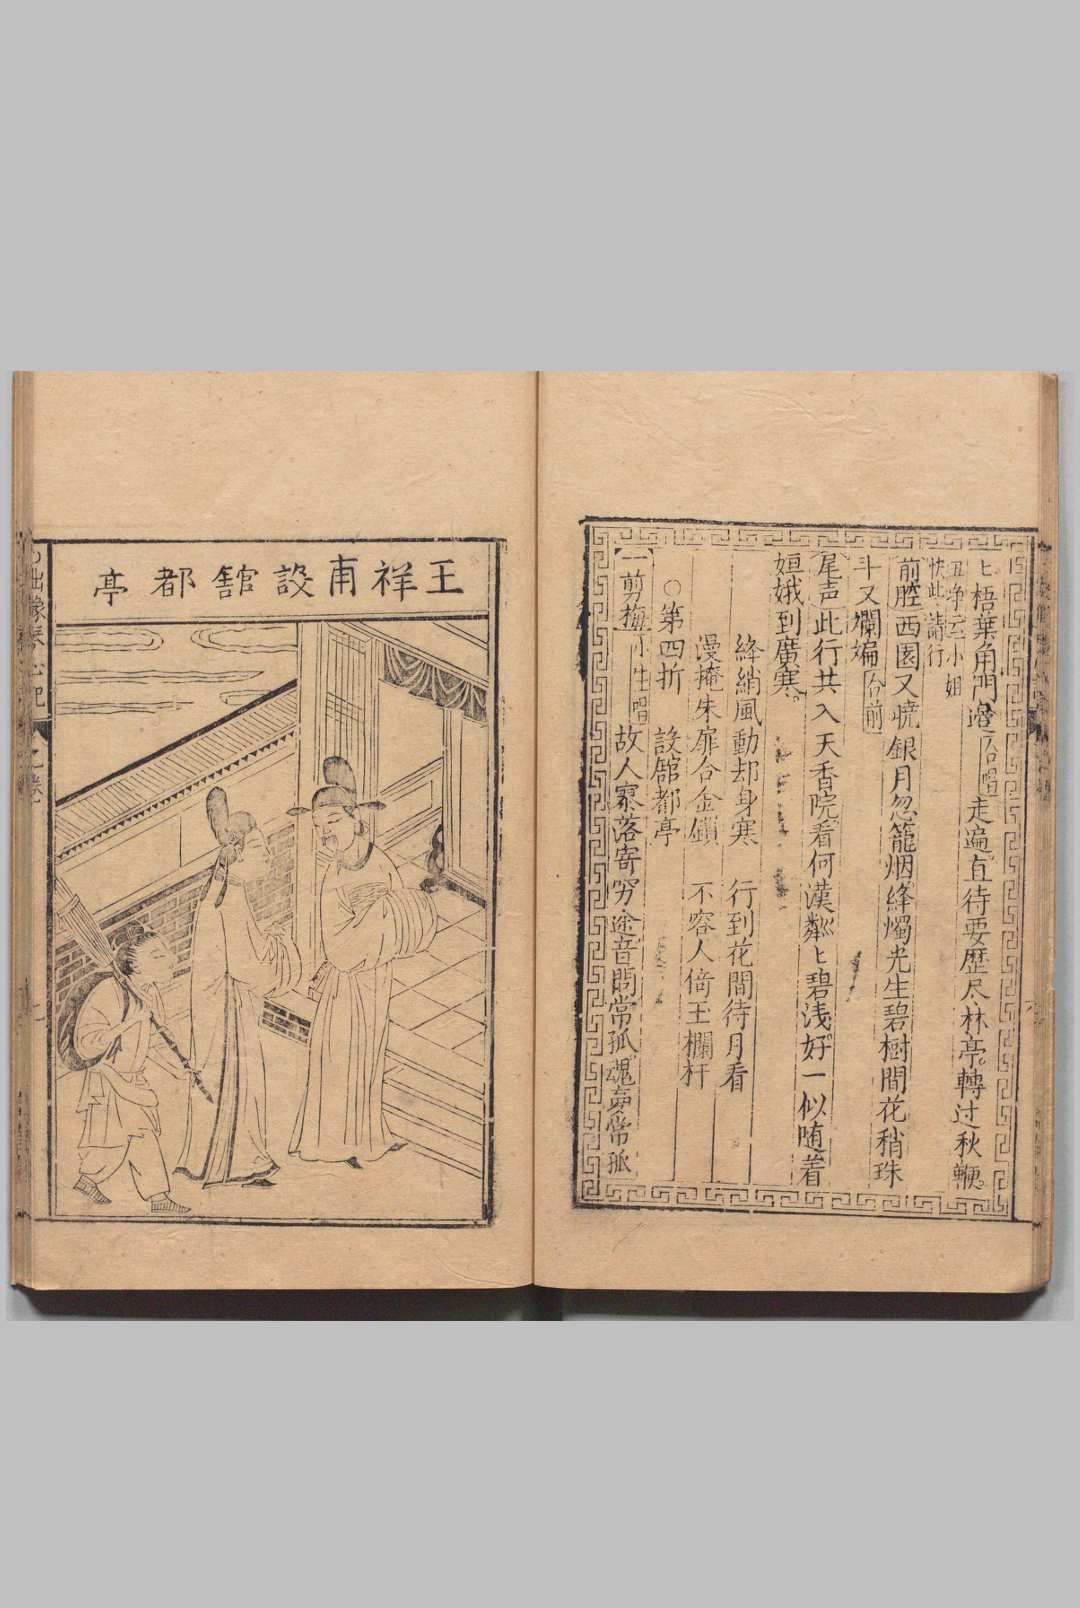 〻梧葉角門邊合唱走遍直待要歷尽林亭轉过秋韆
丑净云小姐
快些請行
前腔西園又燒銀月忽籠烟絳燭光生碧樹間花稍珠
斗又斕斒合前
尾声此行共入天香院看何漢粼〻碧浅好一似随着
姮娥到廣寒
絳綃風動却身寒 行到花間待月看
漫掩朱扉合金鎖 不容人倚玉欄杆
○第四折 設舘都亭
一剪梅小生唱故人寥落寄穷途音問常孤魂夣常孤
王祥甫設舘都亭
出像琴心記